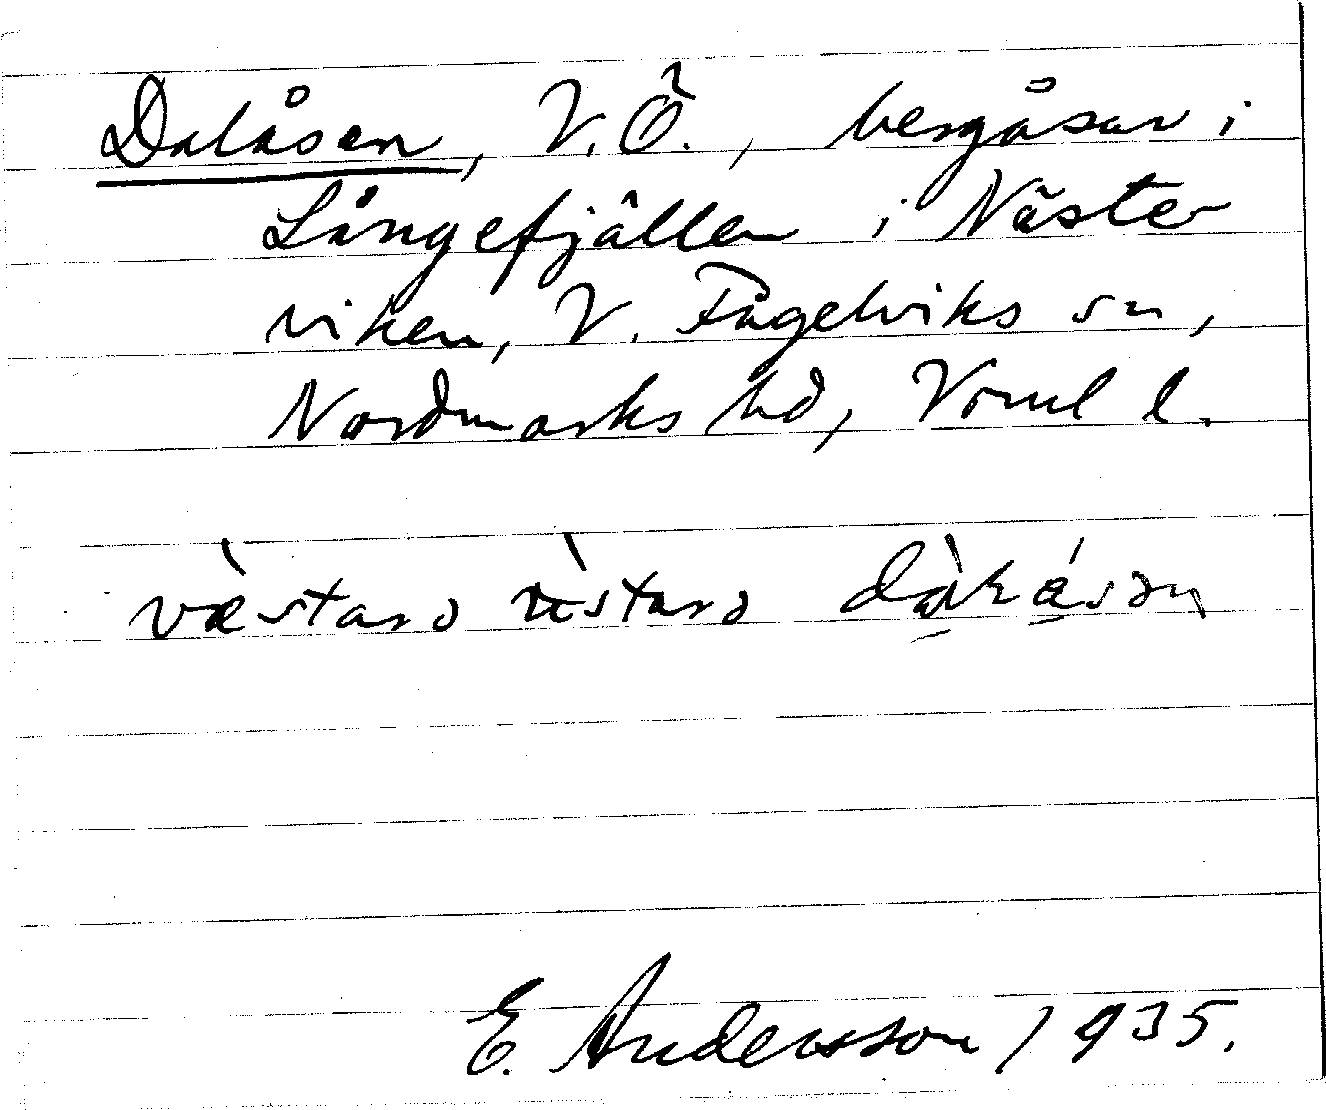 Dalåsen, V. Ö., bergåsar i
Långefjällen i Näster
viken, V. Fågelviks sn,
Nordmarks hd, Vrml l.
væ̀starə ǜstarə dàɫåsən
E. Andersson 1935.